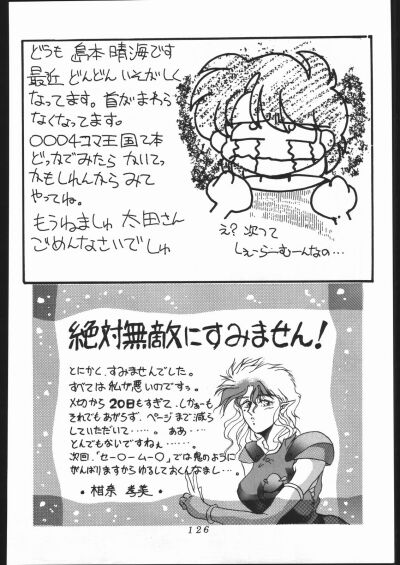 どうも 島本 晴海です
最近 どんどん いそがしく
なってます。首がまわら
なくなってます。
0004コマ王国て本
どっかでみたら かいてっ
かもしれんから みて
やってね。
もうねましゅ 太田さん
ごめんなさいでしゅ
え? 次って
しぇーらーむーんなの…
絶対無敵にすみません!
とにかく、すみませんでした。
すべては私が悪いのですっ。
〆切から20日もすぎて、しかぁーも
それでもあがらず、ページまで減ら
していただいて‥‥‥。ああ‥‥
とんでもないですねぇ‥‥‥。
次回、「セー○ームー○」では鬼のように
がんばりますからゆるしておくんなまし…。
・相奈 孝美・
126